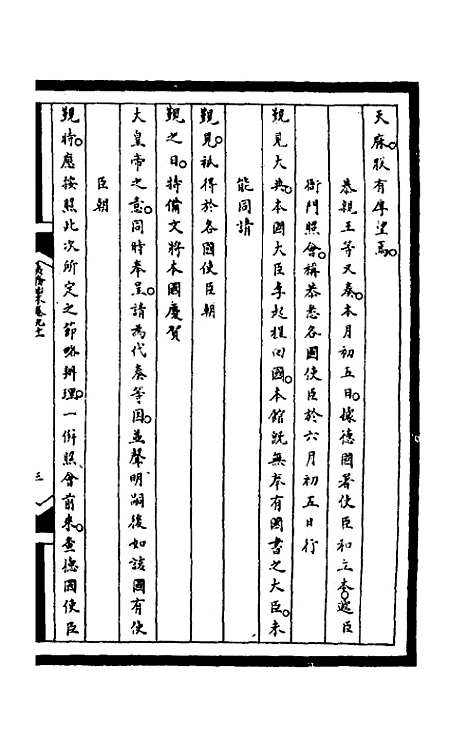 天庥朕有厚望焉。
恭親王等又奏。本月初五日。據德國署使臣和立本。遞臣
衙門照會。稱恭悉各國使臣於六月初五日行
覲見大典。本國大臣早起程回國。本館旣無奉有國書之大臣。未
能同請
覲見。祇得於各國使臣朝
覲之日。特備文將本國慶賀
大皇帝之意。同時奉呈。請爲代奏等因。並聲明嗣後如該國有使
臣朝
覲時。應按照此次所定之節略辦理。一併照會前來。查德國使臣
夷務始末卷九十
三